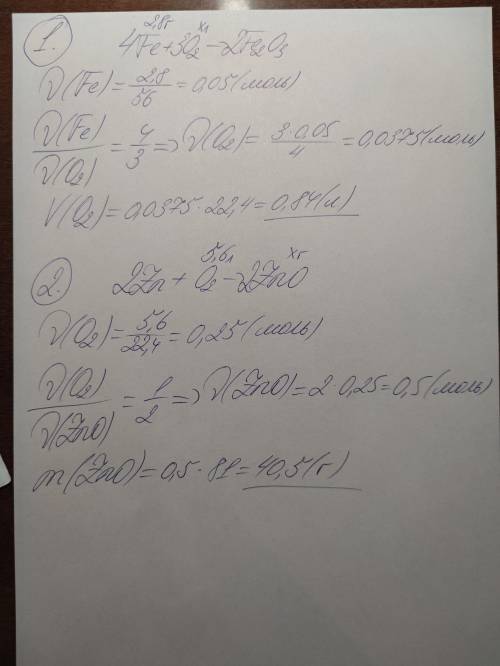 1.
2,8г х л
4Fe+3O₂→2Fe₂O₃
ν(Fe)=2,8/56=0,05(моль)
ν(Fe)/ν(O₂)=4/3=>ν(O₂)=3·0,05/4=0,0375(моль)
V(O₂)=0,0375·22,4=0,84(л)
2.
5,6л хг
2Zn+O₂→2ZnO
ν(O₂)=5,6/22,4=0,25(моль)
ν(O₂)/ν(ZnO)=1/2=>ν(ZnO)=2·0,25=0,5(моль)
m(ZnO)=0,5·81=40,5(г)